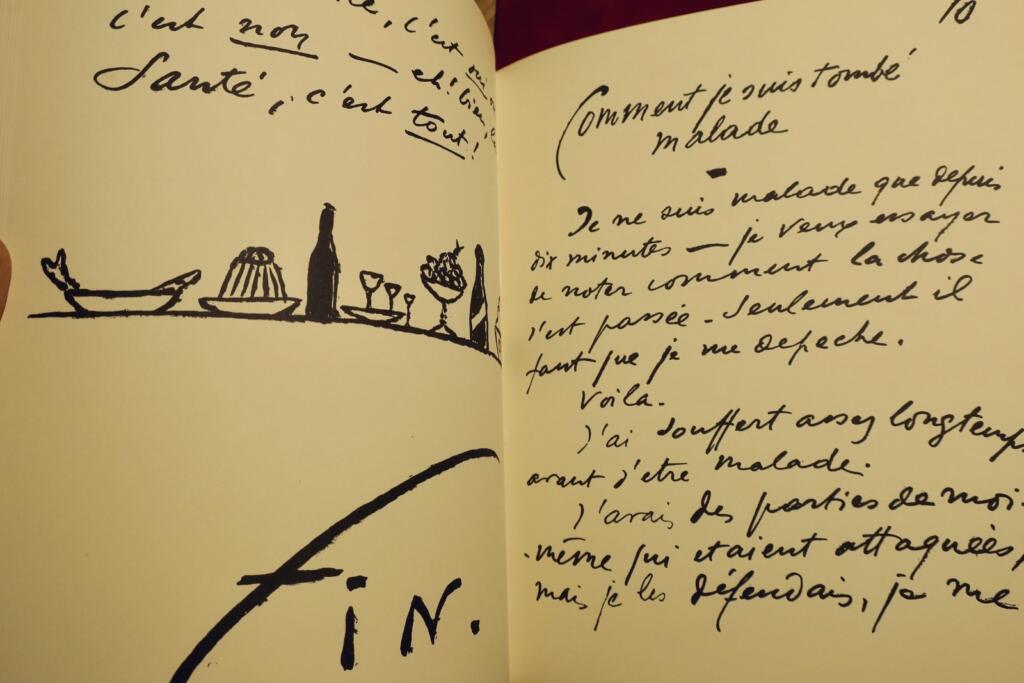 c'est
c'est non — eh! bien,
Santé, c'est tout!
FIN.
10
Comment je suis tombé
malade
—
Je ne suis malade que depuis
dix minutes — je veux essayer
de noter comment la chose
s'est passée. Seulement il
faut que je me depeche.
Voila.
J'ai souffert assez longtemps
avant d'etre malade.
J'avais des parties de moi-
-même qui etaient attaquées,
mais je les défendais, je me